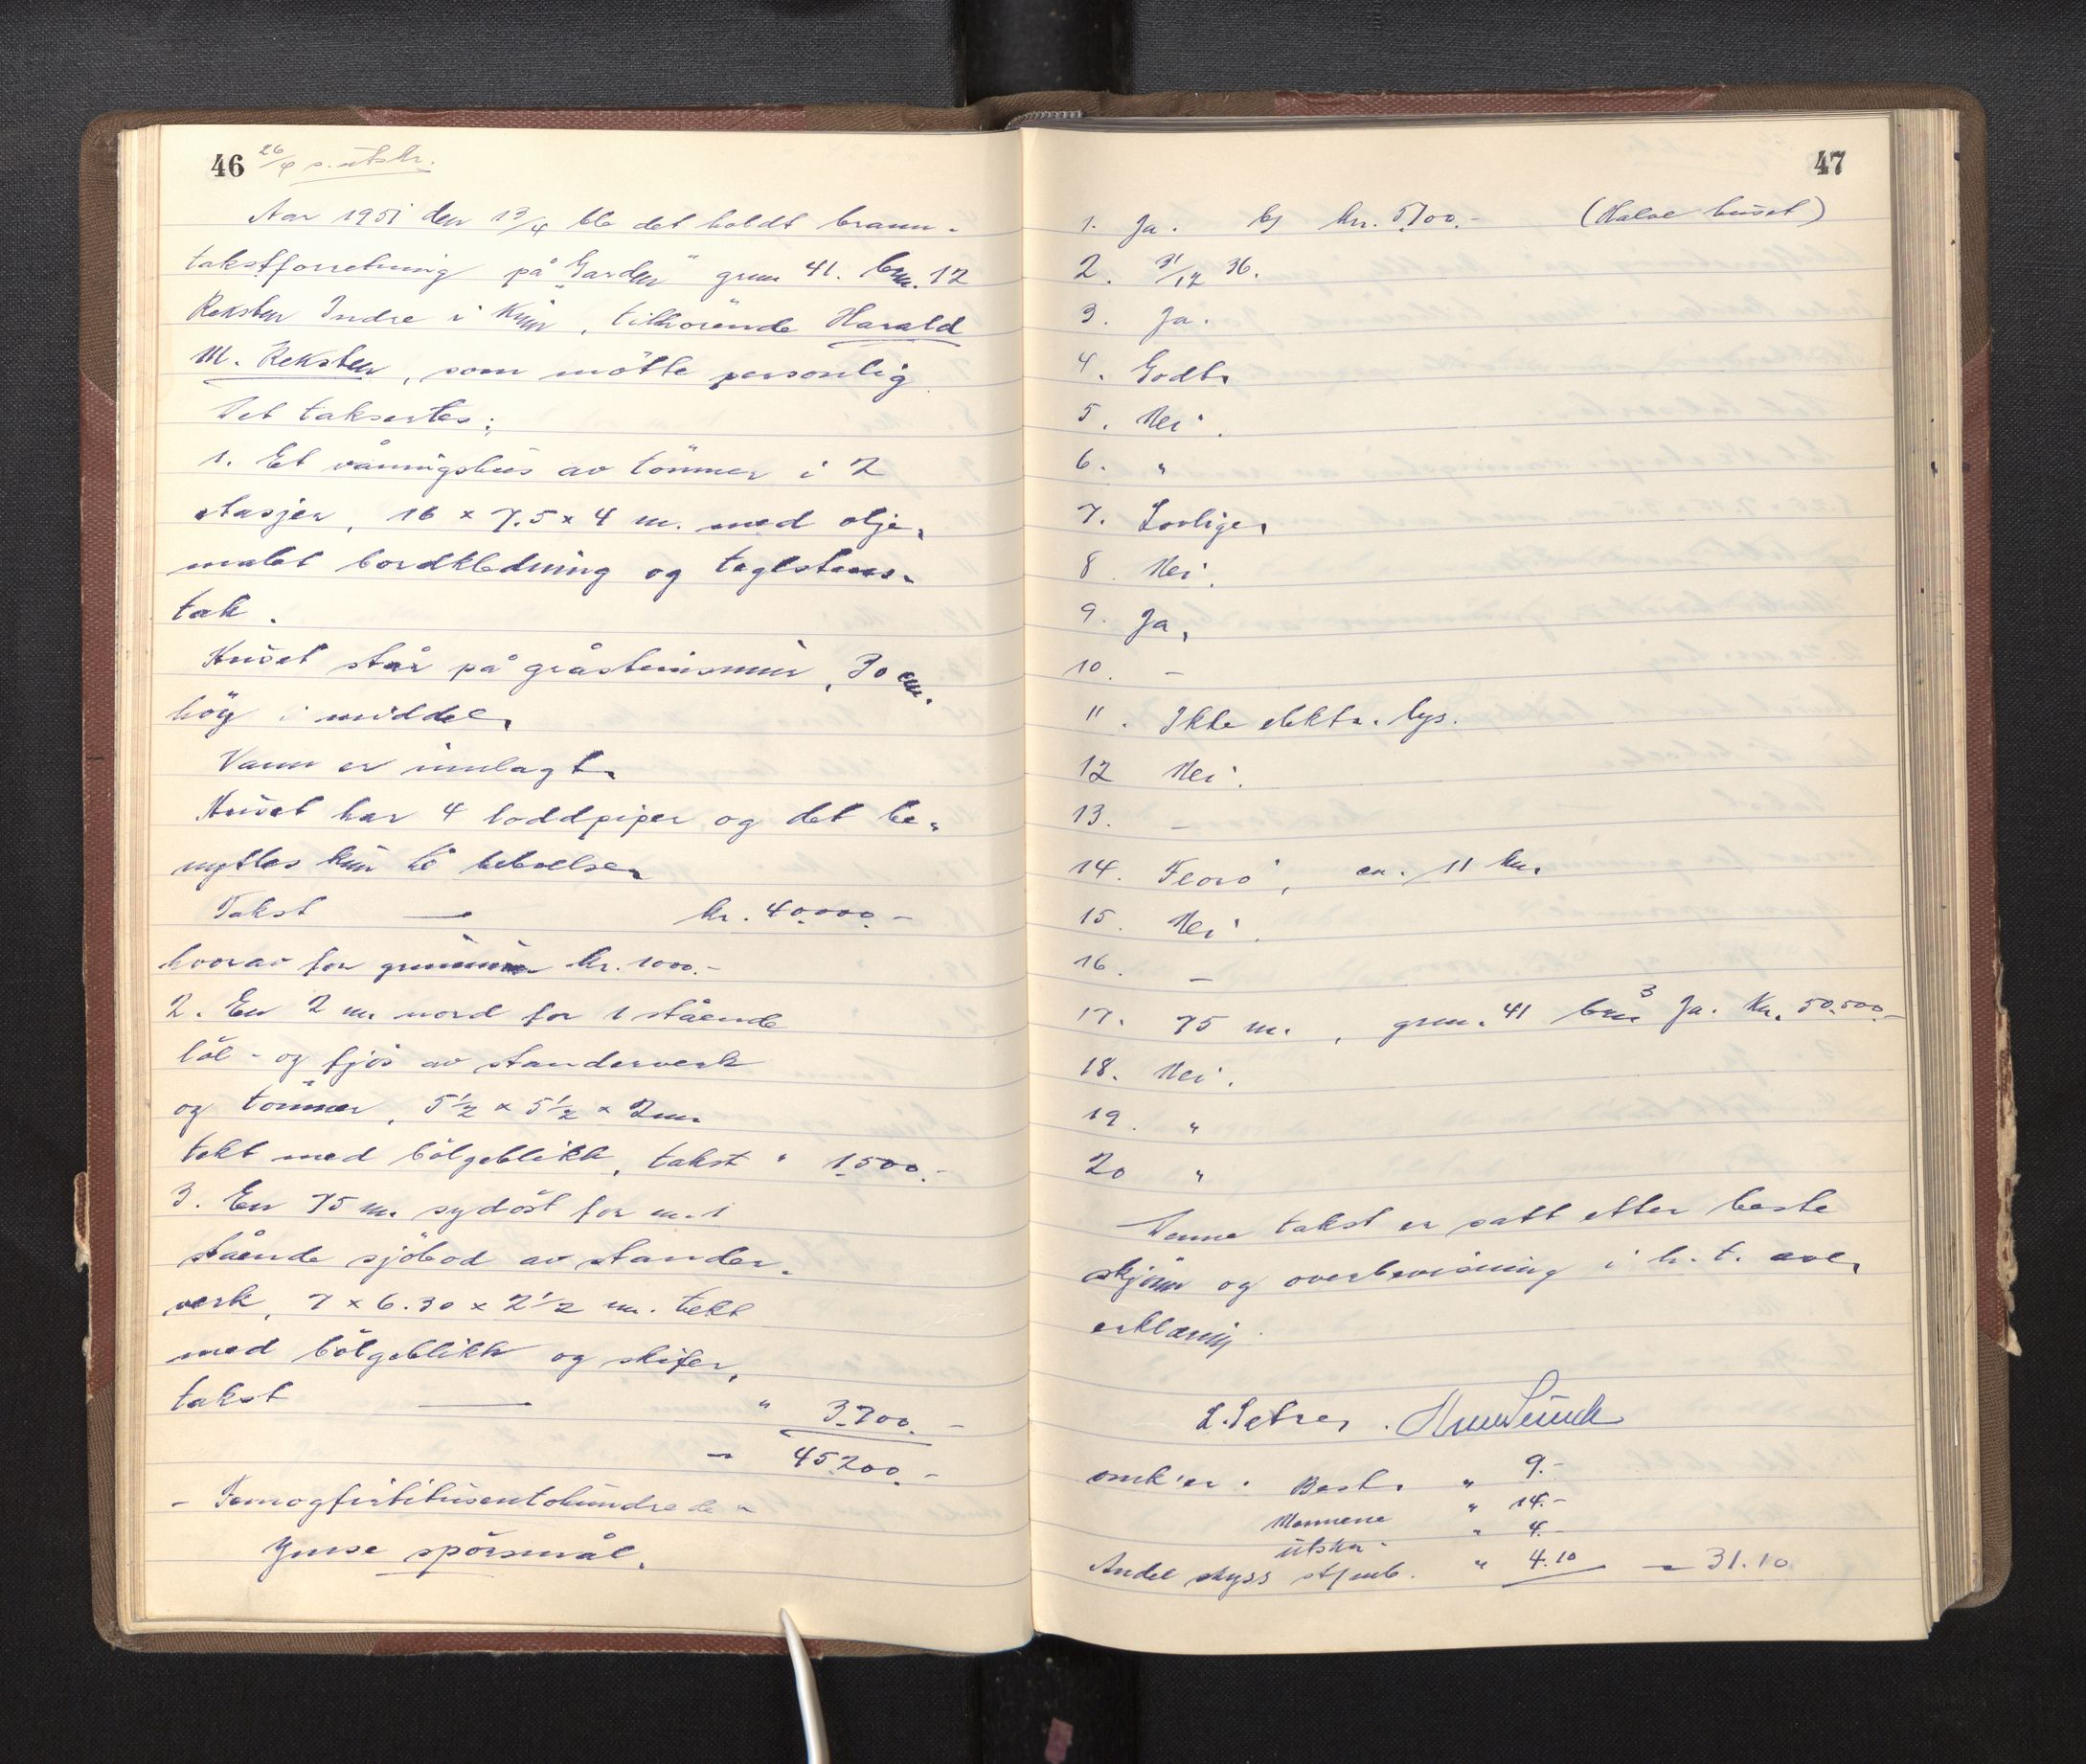 46 26/4 s. utskr.
Aar 1951 den 13/4 ble det holdt brann-
takstforretning på "Garden" grnr 41. brnr. 12
Reksten Indre i Kinn, tilhörende Harald
M. Reksten, som mötte personlig
Det taksertes:
1. Et våningshus av tömmer i 2
etasjer, 16 x 7.5 x 4 m. med olje-
malet bordkledning og taglstens-
tak.
Huset står på gråstensmur, 30 cm.
höy i middel.
Vann er innlagt.
Huset har 4 loddpiper og det be-
nyttes kun til beboelse.
Takst — kr. 40.000.-
hvorav for grunnmur kr. 1000.-
2. En 2 m. nord for 1 stående
löe- og fjös av standerverk
og tömmer, 5 1/2 x 5 1/2 x 2 m.
tekt med bölgeblikk, takst " 1.500.-
3. En 75 m. sydöst for nr. 1
stående sjöbod av stander-
verk, 7 x 6.30 x 2 1/2 m. tekt
med bölgeblikk og skifer,
takst — " 3.700.-
45.200.-
- Femogfirtitusentohundrede -
Ymse spörsmål.
47
1. Ja. kr. 5700.- (Halve huset)
2. 31/12 36.
3. Ja.
4. Godt.
5. Nei.
6. "
7. Lovlige.
8. Nei.
9. Ja.
10. -
11. Ikke elektr. lys.
12 Nei.
13. -
14. Florö, ca. 11 km.
15. Nei.
16. -
17. 75 m., grnr. 41 brnr 3 Ja. Kr. 50.500.-
18. Nei.
19. "
20 "
Denne takst er satt etter beste
skjönn og overbevisning i h. t. avl.
erklæring.
L. Setrer.
omk'er. Best. " 9.-
Mennene " 14.-
utskr. " 4.-
Andel skyss " 4.10 - 31.10